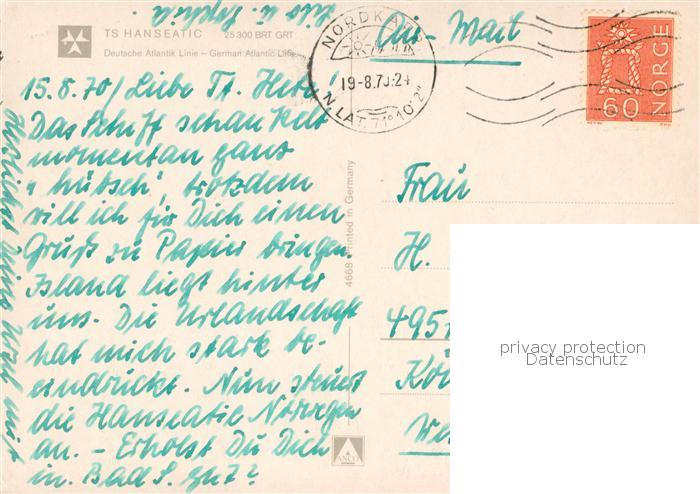 TS HANSEATIC 25 300 BRT GRT
Deutsche Atlantik Linie – German Atlantic Line
Air-Mail
NORDKAPP
19-8.70.24
N. LAT. 71° 10' 2"
NORGE
60
15.8.70/ Liebe Tt. Heke!
Das Schiff schaukelt
momentan ganz
„hübsch", trotzdem
will ich für Dich einen
Gruß zu Papier bringen.
Island liegt hinter
uns. Die Urlandschaft
hat mich stark be-
eindruckt. Nun steuert
die Hanseatic Norwegen
an. – Erholst Du Dich
in Bad S. gut?
Herzlichst Deine
mit
u.
4668 Printed in Germany
Frau
H.
495
Kö
We
ANCO
privacy protection
Datenschutz